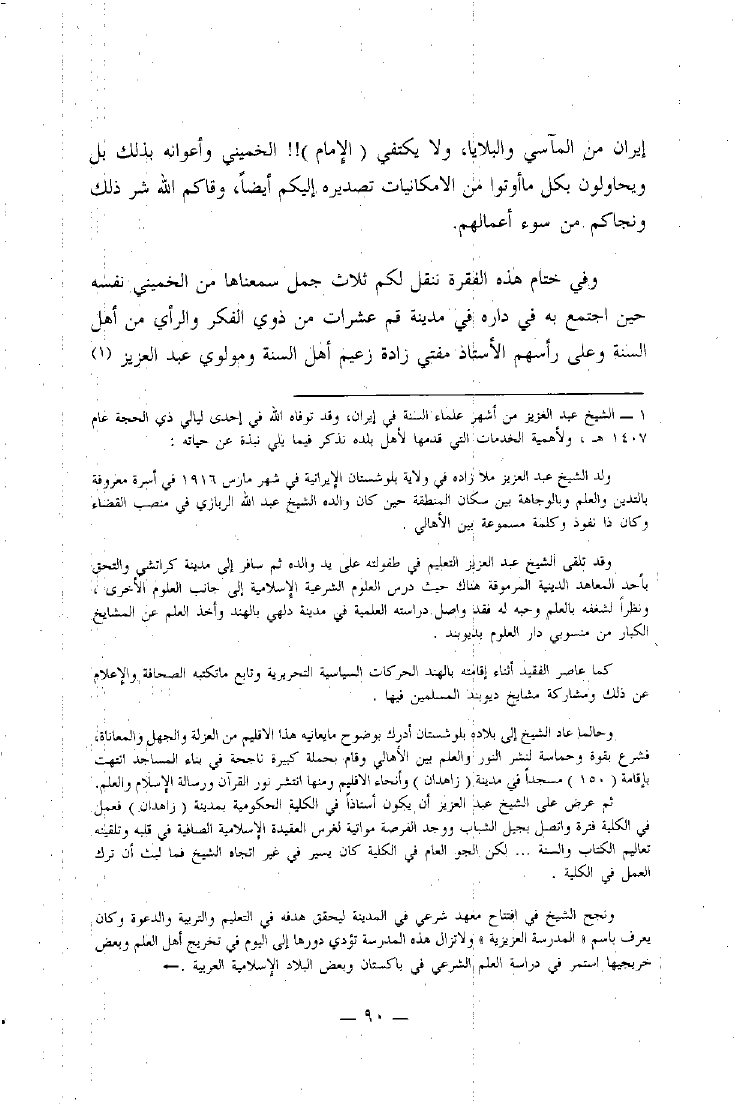 إيران من المآسي والبلايا، ولا يكتفي ( الإمام )!! الخميني وأعوانه بذلك بل
ويحاولون بكل ماأوتوا من الامكانيات تصديره إليكم أيضاً، وقاكم الله شر ذلك
ونجاكم من سوء أعمالهم.
وفي ختام هذه الفقرة ننقل لكم ثلاث جمل سمعناها من الخميني نفسه
حين اجتمع به في داره في مدينة قم عشرات من ذوي الفكر والرأي من أهل
السنة وعلى رأسهم الأستاذ مفتي زادة زعيم أهل السنة ومولوي عبد العزيز (١)
١ ــ الشيخ عبد العزيز من أشهر علماء السنة في إيران، وقد توفاه الله في إحدى ليالي ذي الحجة عام
١٤٠٧ هـ ، ولأهمية الخدمات التي قدمها لأهل بلده نذكر فيما يلي نبذة عن حياته :
ولد الشيخ عبد العزيز ملا زاده في ولاية بلوشستان الإيرانية في شهر مارس ١٩١٦ في أسرة معروفة
بالتدين والعلم وبالوجاهة بين سكان المنطقة حين كان والده الشيخ عبد الله الربازي في منصب القضاء
وكان ذا نفوذ وكلمة مسموعة بين الأهالي .
وقد تلقى الشيخ عبد العزيز التعليم في طفولته على يد والده ثم سافر إلى مدينة كراتشي والتحق
بأحد المعاهد الدينية المرموقة هناك حيث درس العلوم الشرعية الإسلامية إلى جانب العلوم الأخرى ،
ونظراً لشغفه بالعلم وحبه له فقد واصل دراسته العلمية في مدينة دلهي بالهند وأخذ العلم عن المشايخ
الكبار من منسوبي دار العلوم بديوبند .
كما عاصر الفقيد أثناء إقامته بالهند الحركات السياسية التحريرية وتابع ماتكتبه الصحافة والإعلام
عن ذلك ومشاركة مشايخ ديوبند المسلمين فيها .
وحالما عاد الشيخ إلى بلاده بلوشستان أدرك بوضوح مايعانيه هذا الاقليم من العزلة والجهل والمعاناة،
فشرع بقوة وحماسة لنشر النور والعلم بين الأهالي وقام بحملة كبيرة ناجحة في بناء المساجد انتهت
بإقامة ( ١٥٠ ) مسجداً في مدينة ( زاهدان ) وأنحاء الاقليم ومنها انتشر نور القرآن ورسالة الإسلام والعلم.
ثم عرض على الشيخ عبد العزيز أن يكون أستاذاً في الكلية الحكومية بمدينة ( زاهدان ) فعمل
في الكلية فترة واتصل بجيل الشباب ووجد الفرصة مواتية لغرس العقيدة الإسلامية الصافية في قلبه وتلقينه
تعاليم الكتاب والسنة ... لكن الجو العام في الكلية كان يسير في غير اتجاه الشيخ فما لبث أن ترك
العمل في الكلية .
ونجح الشيخ في افتتاح معهد شرعي في المدينة ليحقق هدفه في التعليم والتربية والدعوة وكان
يعرف باسم « المدرسة العزيزية » ولاتزال هذه المدرسة تؤدي دورها إلى اليوم في تخريج أهل العلم وبعض
خريجيها استمر في دراسة العلم الشرعي في باكستان وبعض البلاد الإسلامية العربية . ←
ــ ٩٠ ــ